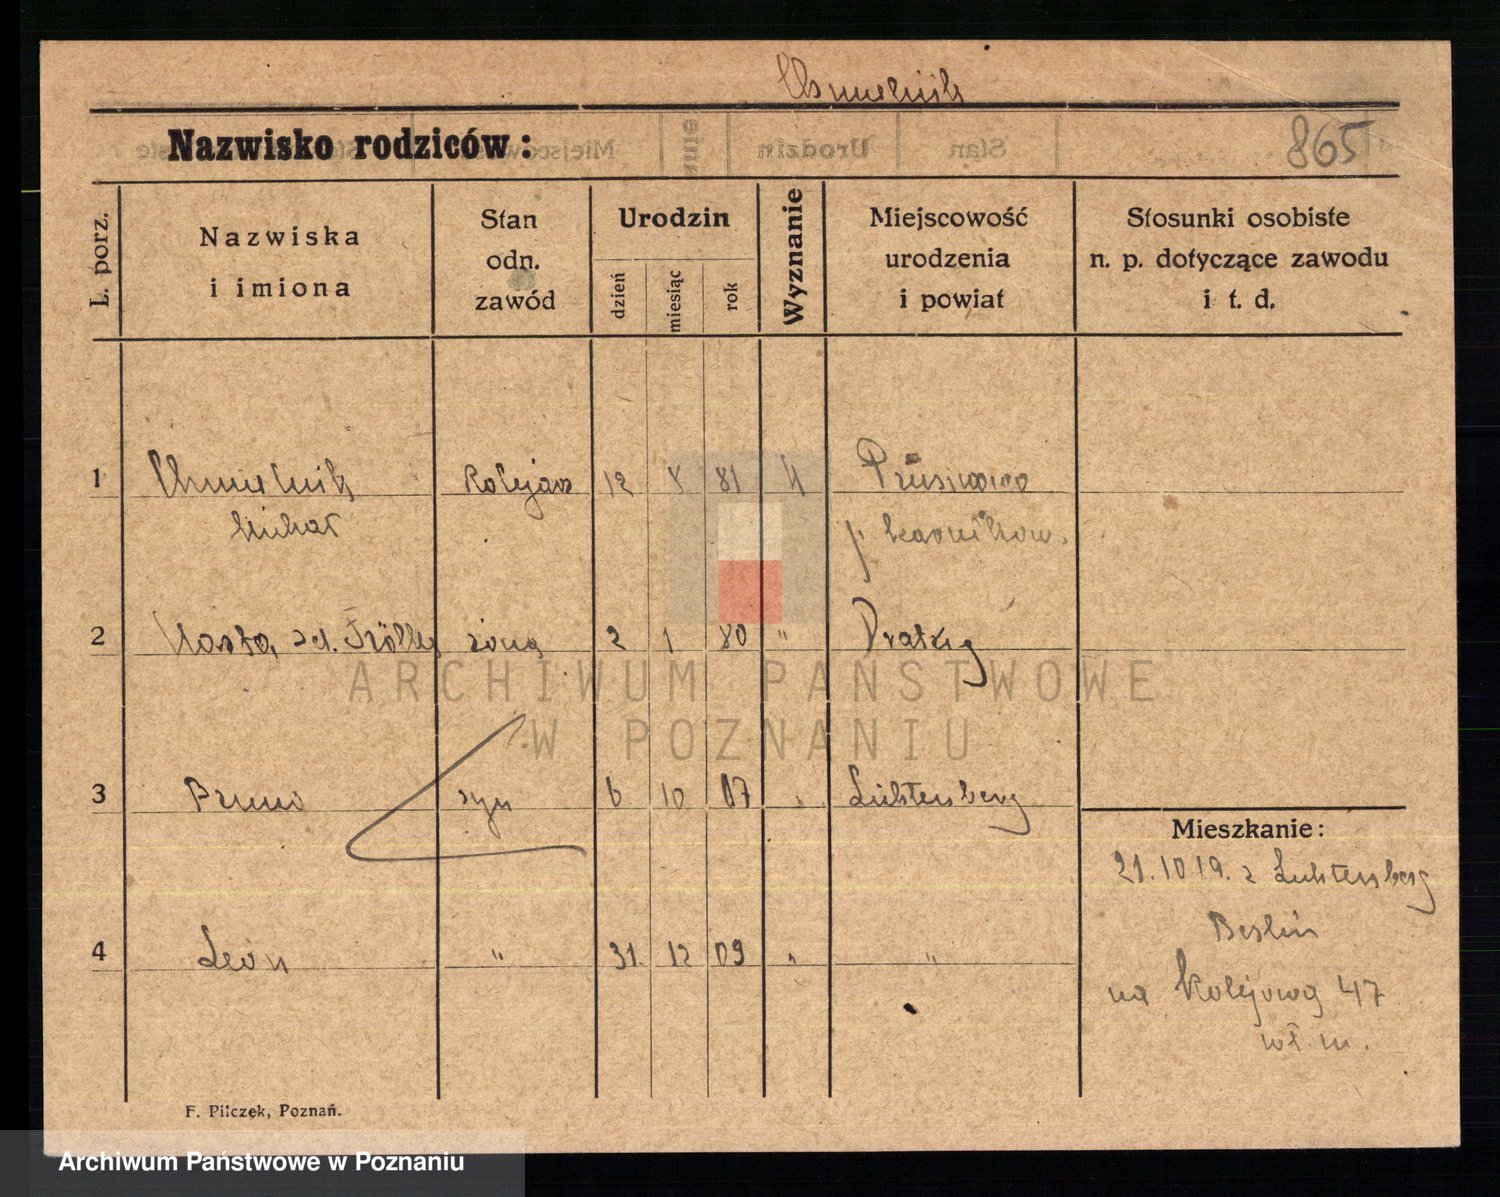 Chmielnik
Nazwisko rodziców:
865
L. porz.
Nazwiska
i imiona
Stan
odn.
zawód
Urodzin
dzień
miesiąc
rok
Wyznanie
Miejscowość
urodzenia
i powiat
Stosunki osobiste
n. p. dotyczące zawodu
i t. d.
1 Chmielnik kolejarz 12 8 81 k
Michał
2 zd. żona 2 1 80 "
ARCHIWUM PAŃSTWOWE
W POZNANIU
3 Bruno syn 6 10 07 " Lichtenberg
Mieszkanie:
21.10 19. z Lichtenberg
Berlin
4 Leon " 31. 12 09 " "
na Kolejową 47
wł. m.
F. Pilczek, Poznań.
Archiwum Państwowe w Poznaniu